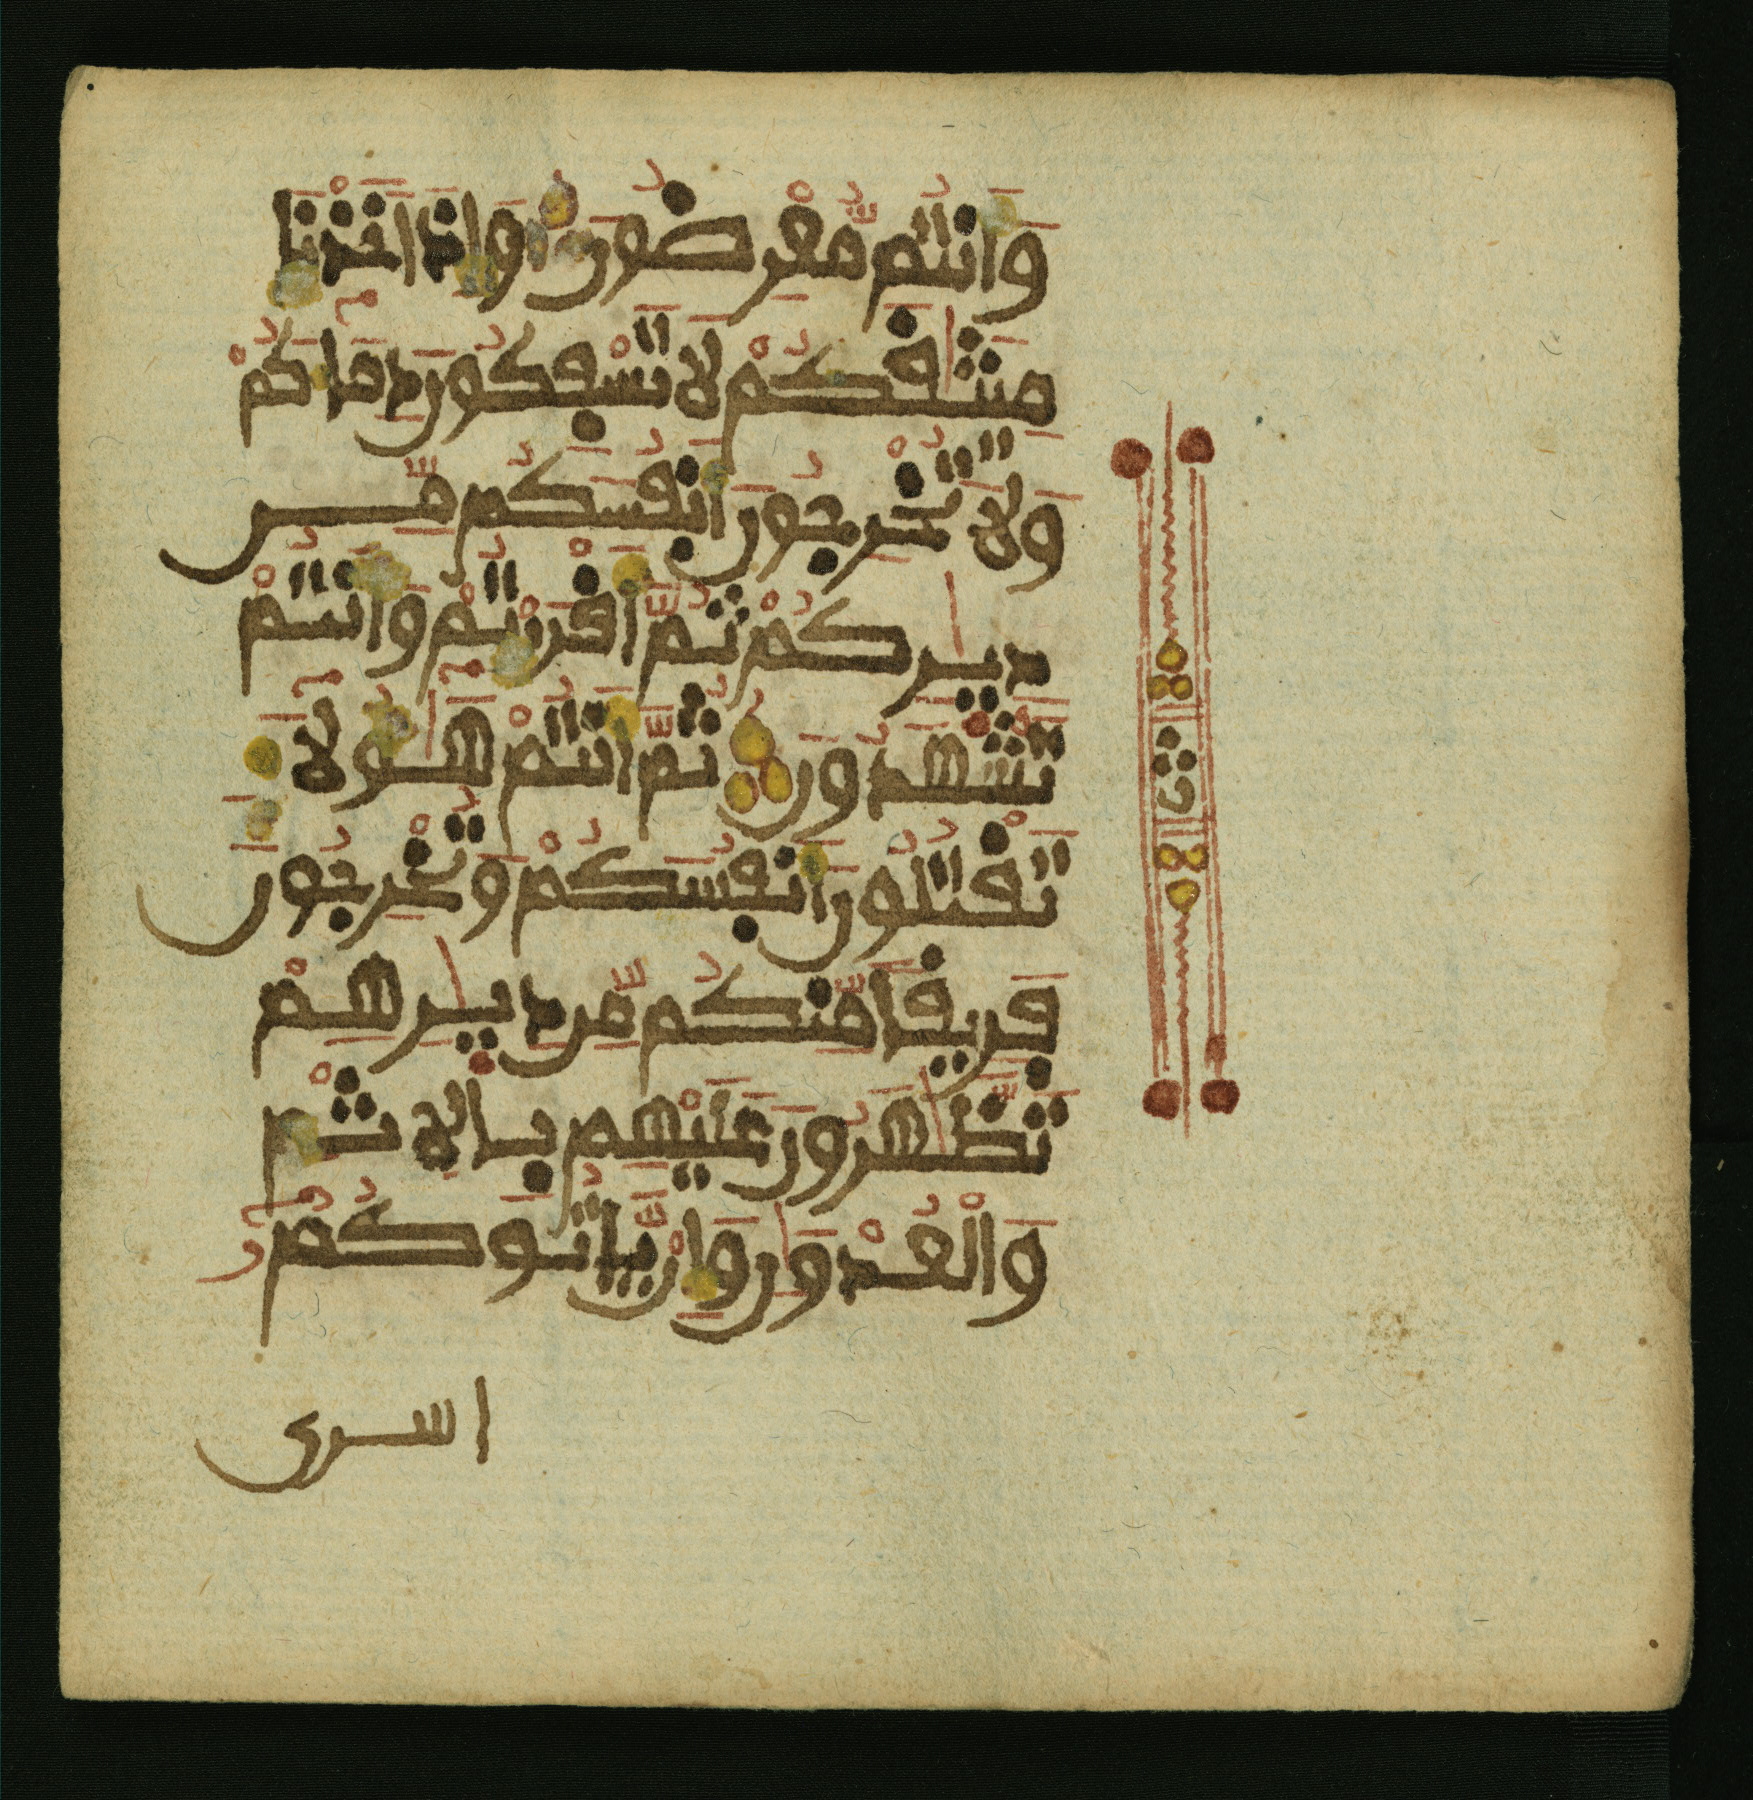 وَأَنتُم مُّعْرِضُونَ وَإِذَ اَخَذْنَا
مِيثَٰقَكُمْ لَا تَسْفِكُونَ دِمَاءَكُمْ
وَلَا تُخْرِجُونَ أَنفُسَكُم مِّن
دِيَٰرِكُمْ ثُمَّ أَقْرَرْتُمْ وَأَنتُمْ
تَشْهَدُونَ ثُمَّ أَنتُمْ هَٰؤُلَاءِ
تَقْتُلُونَ أَنفُسَكُمْ وَتُخْرِجُونَ
فَرِيقًا مِّنكُم مِّن دِيَٰرِهِمْ
تَظَّٰهَرُونَ عَلَيْهِم بِالْإِثْمِ
وَالْعُدْوَٰنِ وَإِنْ يَّاتُوكُمُ
اسرى